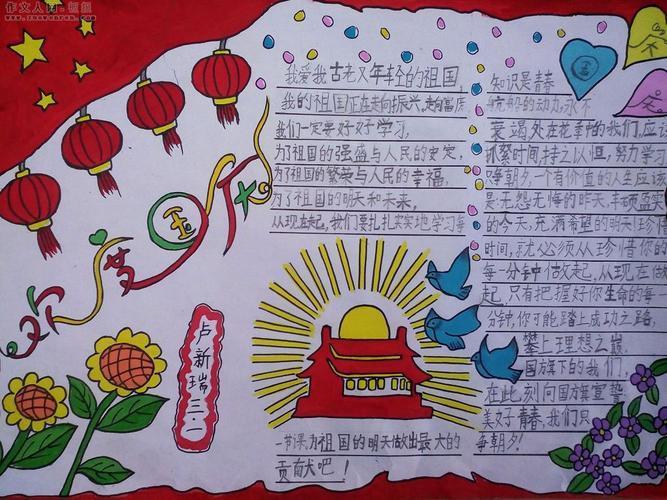 作文人网·恒超
www.zuowenren.com
欢度国庆
卢新瑞 三.一
我爱我古老又年轻的祖国,
我的祖国正在走向振兴,走向富庶
我们一定要好好学习,
为了祖国的强盛与人民的安定,
为了祖国的繁荣与人民的幸福,
为了祖国的明天和未来,
从现在起,我们要扎扎实实地学习每
一节课,为祖国的明天做出最大的
贡献吧!
知识是青春
航船的动力,永不
衰竭处在花季的我们,应
抓紧时间,持之以恒,努力学习
争朝夕一个有价值的人生应该
是:无怨无悔的昨天,丰硕盈实
的今天,充满希望的明天!珍惜
时间,就必须从珍惜你的
每一分钟做起,从现在做
起,只有把握好你生命的每一
分钟,你可能踏上成功之路,
攀上理想之巅.
国旗下的我们,
在此刻向国旗宣誓
美好青春,我们只
争朝夕!